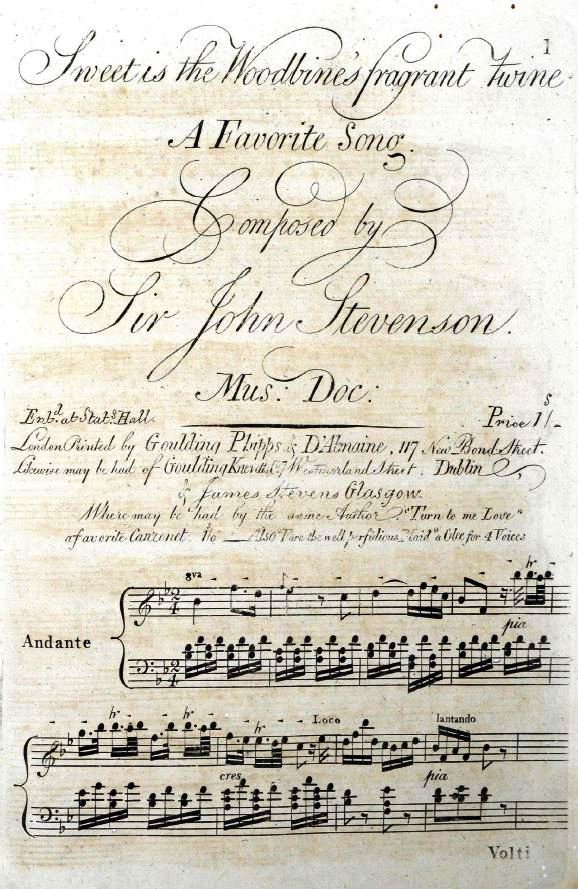 1
Sweet is the Woodbine's fragrant Twine
A Favorite Song.
Composed by
Sir John Stevenson.
Mus: Doc:
Entd. at Stats. Hall. Price 1s/-
London Printed by Goulding Phipps & D'Almaine, 117 New Bond Street.
Likewise may be had of Goulding Knevett & Co. 7 Westmorland Street, Dublin
& James Stevens Glasgow.
Where may be had by the same Author "Turn to me Love"
a favorite Canzonet. "Fare the well perfidious Maid" a Glee for 4 Voices
8va hr
pia
Andante
hr hr hr Loco lantando
cres pia
Volti